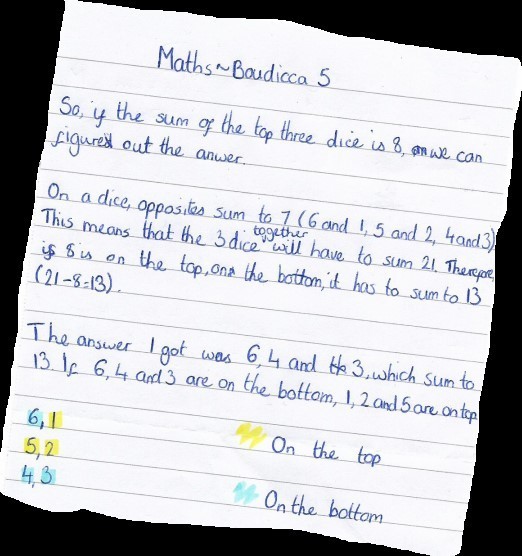 Maths~Boudicca 5
So, if the sum of the top three dice is 8, we can
figured out the anwer.
On a dice, opposites sum to 7 (6 and 1, 5 and 2, 4 and 3)
This means that the 3 dice together will have to sum 21. Therefore,
if 8 is on the top, on the bottom, it has to sum to 13
(21-8=13).
The answer I got was 6, 4 and 3, which sum to
13 If 6, 4 and 3 are on the bottom, 1, 2 and 5 are on top
6, 1
5, 2
4, 3
On the top
On the bottom